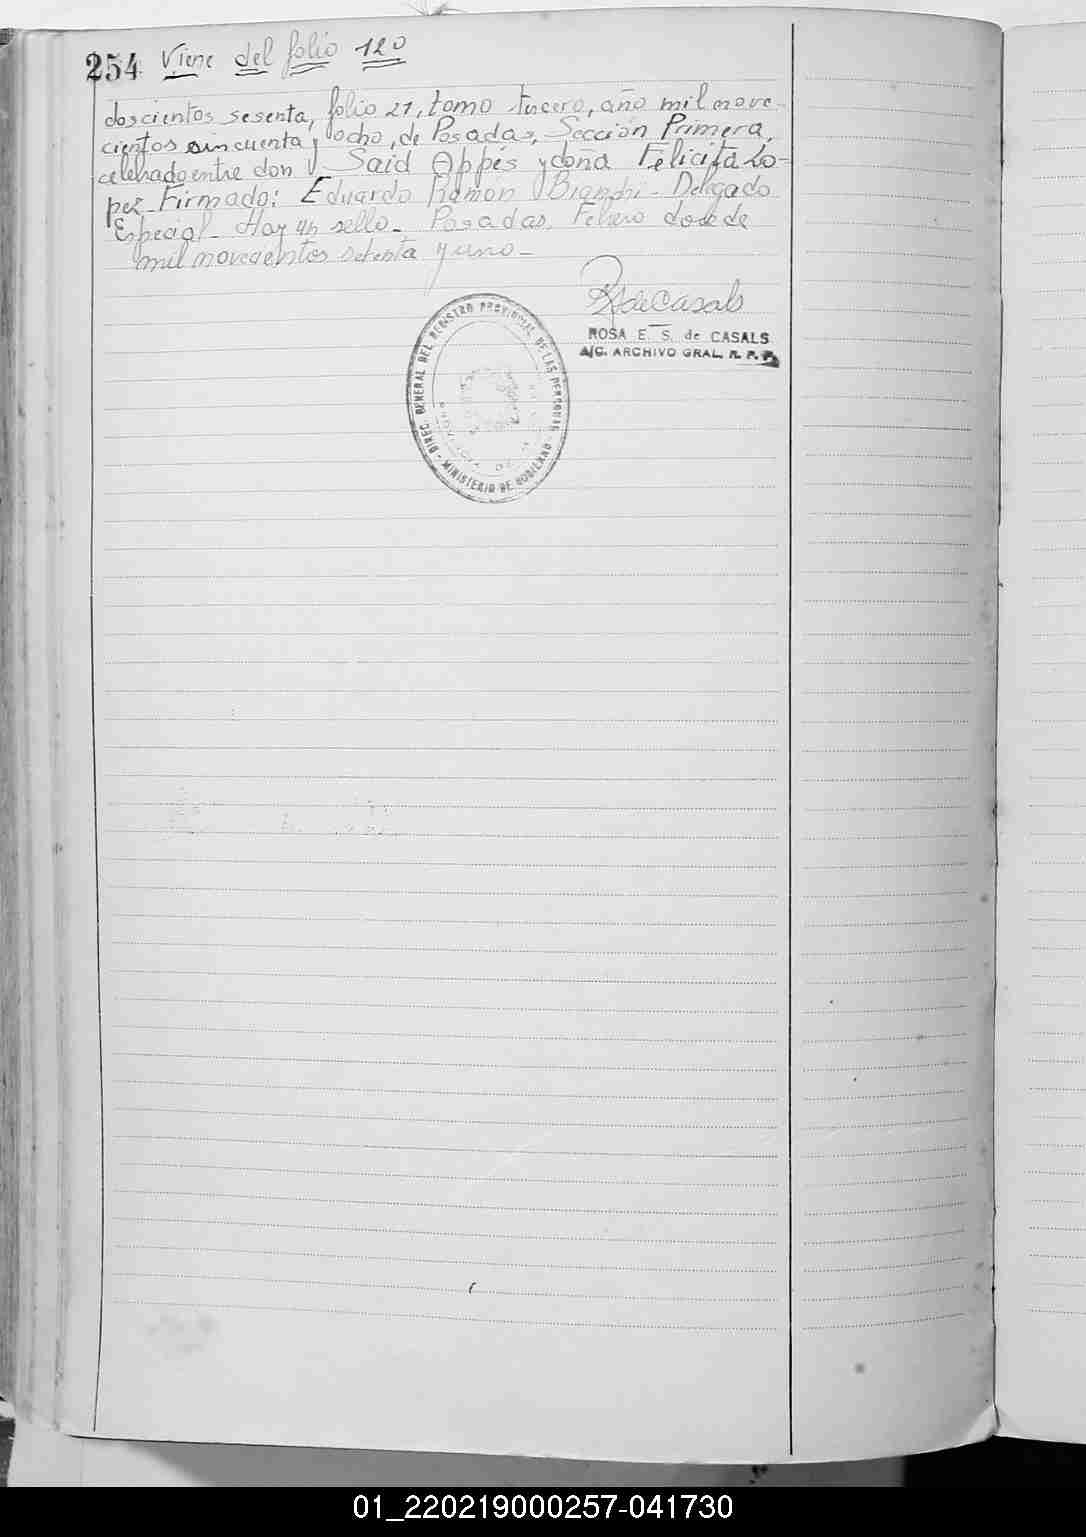 254 Viene del folio 120
doscientos sesenta, folio 21, tomo tercero, año mil nove-
cientos cincuenta y ocho, de Posadas, Sección Primera,
celebrado entre don Said Appés y doña Felicita Lo-
pez - Firmado: Eduardo Ramon Bianchi - Delegado
Especial - Hay un sello - Posadas, Febrero doce de
mil novecientos setenta y uno -
RSdeCasals
ROSA E. S. de CASALS
A/C. ARCHIVO GRAL. R. P. P.
DIREC. GENERAL DEL REGISTRO PROVINCIAL DE LAS PERSONAS
- MINISTERIO DE GOBIERNO -
01_220219000257-041730